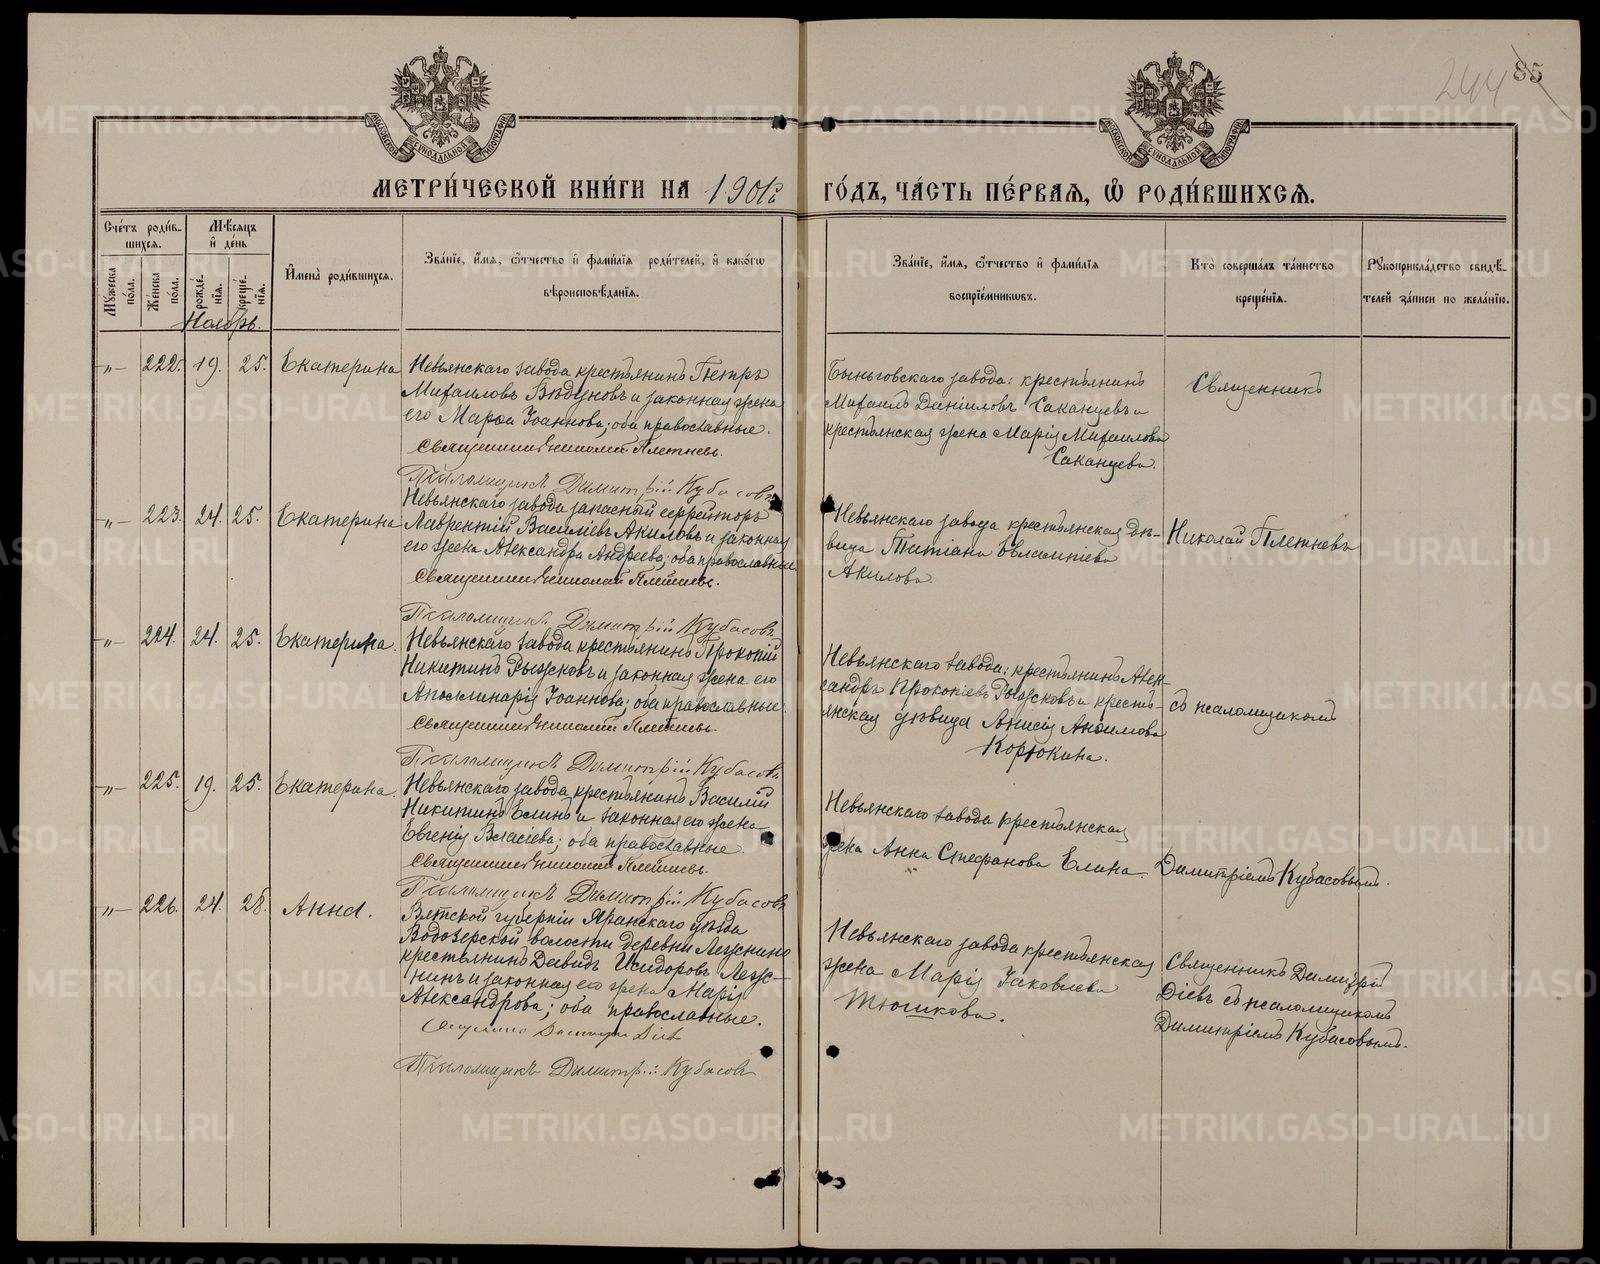 244 85
МЕТРИ́ЧЕСКОЙ КНИ́ГИ НА 1901й ГО́ДЪ, ЧА́СТЬ ПЕ́РВАЯ, Ѿ РОДИ́ВШИХСЯ.
Сче́тъ роди́в-
шихся.
Му́жеска по́ла.
Же́нска по́ла.
Мѣ́сяцъ
и҆ де́нь
рожде́-
нїя.
креще́-
нїя.
И҆мена̀ роди́вшихся.
Зва́нїе, и҆́мя, ѻ҆́тчество и҆ фами́лїя роди́телей, и҆ како́гѡ
вѣроисповѣ́данїя.
Зва́нїе, и҆́мя, ѻ҆́тчество и҆ фами́лїя
воспрїе́мникѡвъ.
Кто̀ соверша́лъ та́инство
креще́нїя.
Рꙋкоприкла́дство свидѣ́-
телей за́писи по жела́нїю.
Ноябрь.
-„- 222. 19. 25. Екатерина
Невьянскаго завода крестьянинъ Петръ
Михаиловъ Вѣдуновъ и законная жена
его Марѳа Іоаннова; оба православные.
Священникъ Николай Плетневъ.
Псаломщикъ Димитрій Кубасовъ
Быньговскаго завода: крестьянинъ
Михаилъ Данииловъ Саканцевъ и
крестьянская жена Марія Михаилова
Саканцева.
Священникъ
-„- 223. 24. 25. Екатерина
Невьянскаго завода запасный ефрейторъ
Лаврентій Василіевъ Акиловъ и законная
его жена Александра Андреева; оба православные
Священникъ Николай Плетневъ.
Псаломщикъ Димитрій Кубасовъ
Невьянскаго завода крестьянская дѣ-
вица Татіана Евлампіева
Акилова.
Николай Плетневъ
-„- 224. 24. 25. Екатерина.
Невьянскаго завода крестьянинъ Прокопій
Никитинъ Рыжковъ и законная жена его
Аполлинарія Іоаннова; оба православные.
Священникъ Николай Плетневъ.
Псаломщикъ Димитрій Кубасовъ
Невьянскаго завода: крестьянинъ Алек-
сандръ Прокопіевъ Рыжковъ и кресть-
янская дѣвица Анисія Акимова
Корюкина.
съ псаломщикомъ
-„- 225. 19. 25. Екатерина.
Невьянскаго завода крестьянинъ Василій
Никитинъ Елинъ и законная его жена
Евгенія Власіева; оба православные.
Священникъ Николай Плетневъ.
Псаломщикъ Димитрій Кубасовъ
Невьянскаго завода крестьянская
жена Анна Стефанова Елина.
Димитріемъ Кубасовымъ.
-„- 226. 24. 28. Анна.
Вятской губерніи Яранскаго уѣзда
Водозерской волости деревни Лежнино
крестьянинъ Давидъ Исидоровъ Леж-
нинъ и законная его жена Марія
Александрова; оба православные.
Священникъ Димитрій Діевъ
Псаломщикъ Димитрій Кубасовъ
Невьянскаго завода крестьянская
жена Марія Іаковлева
Тюшкова.
Священникъ Димитрій
Діевъ съ псаломщикомъ
Димитріемъ Кубасовымъ.